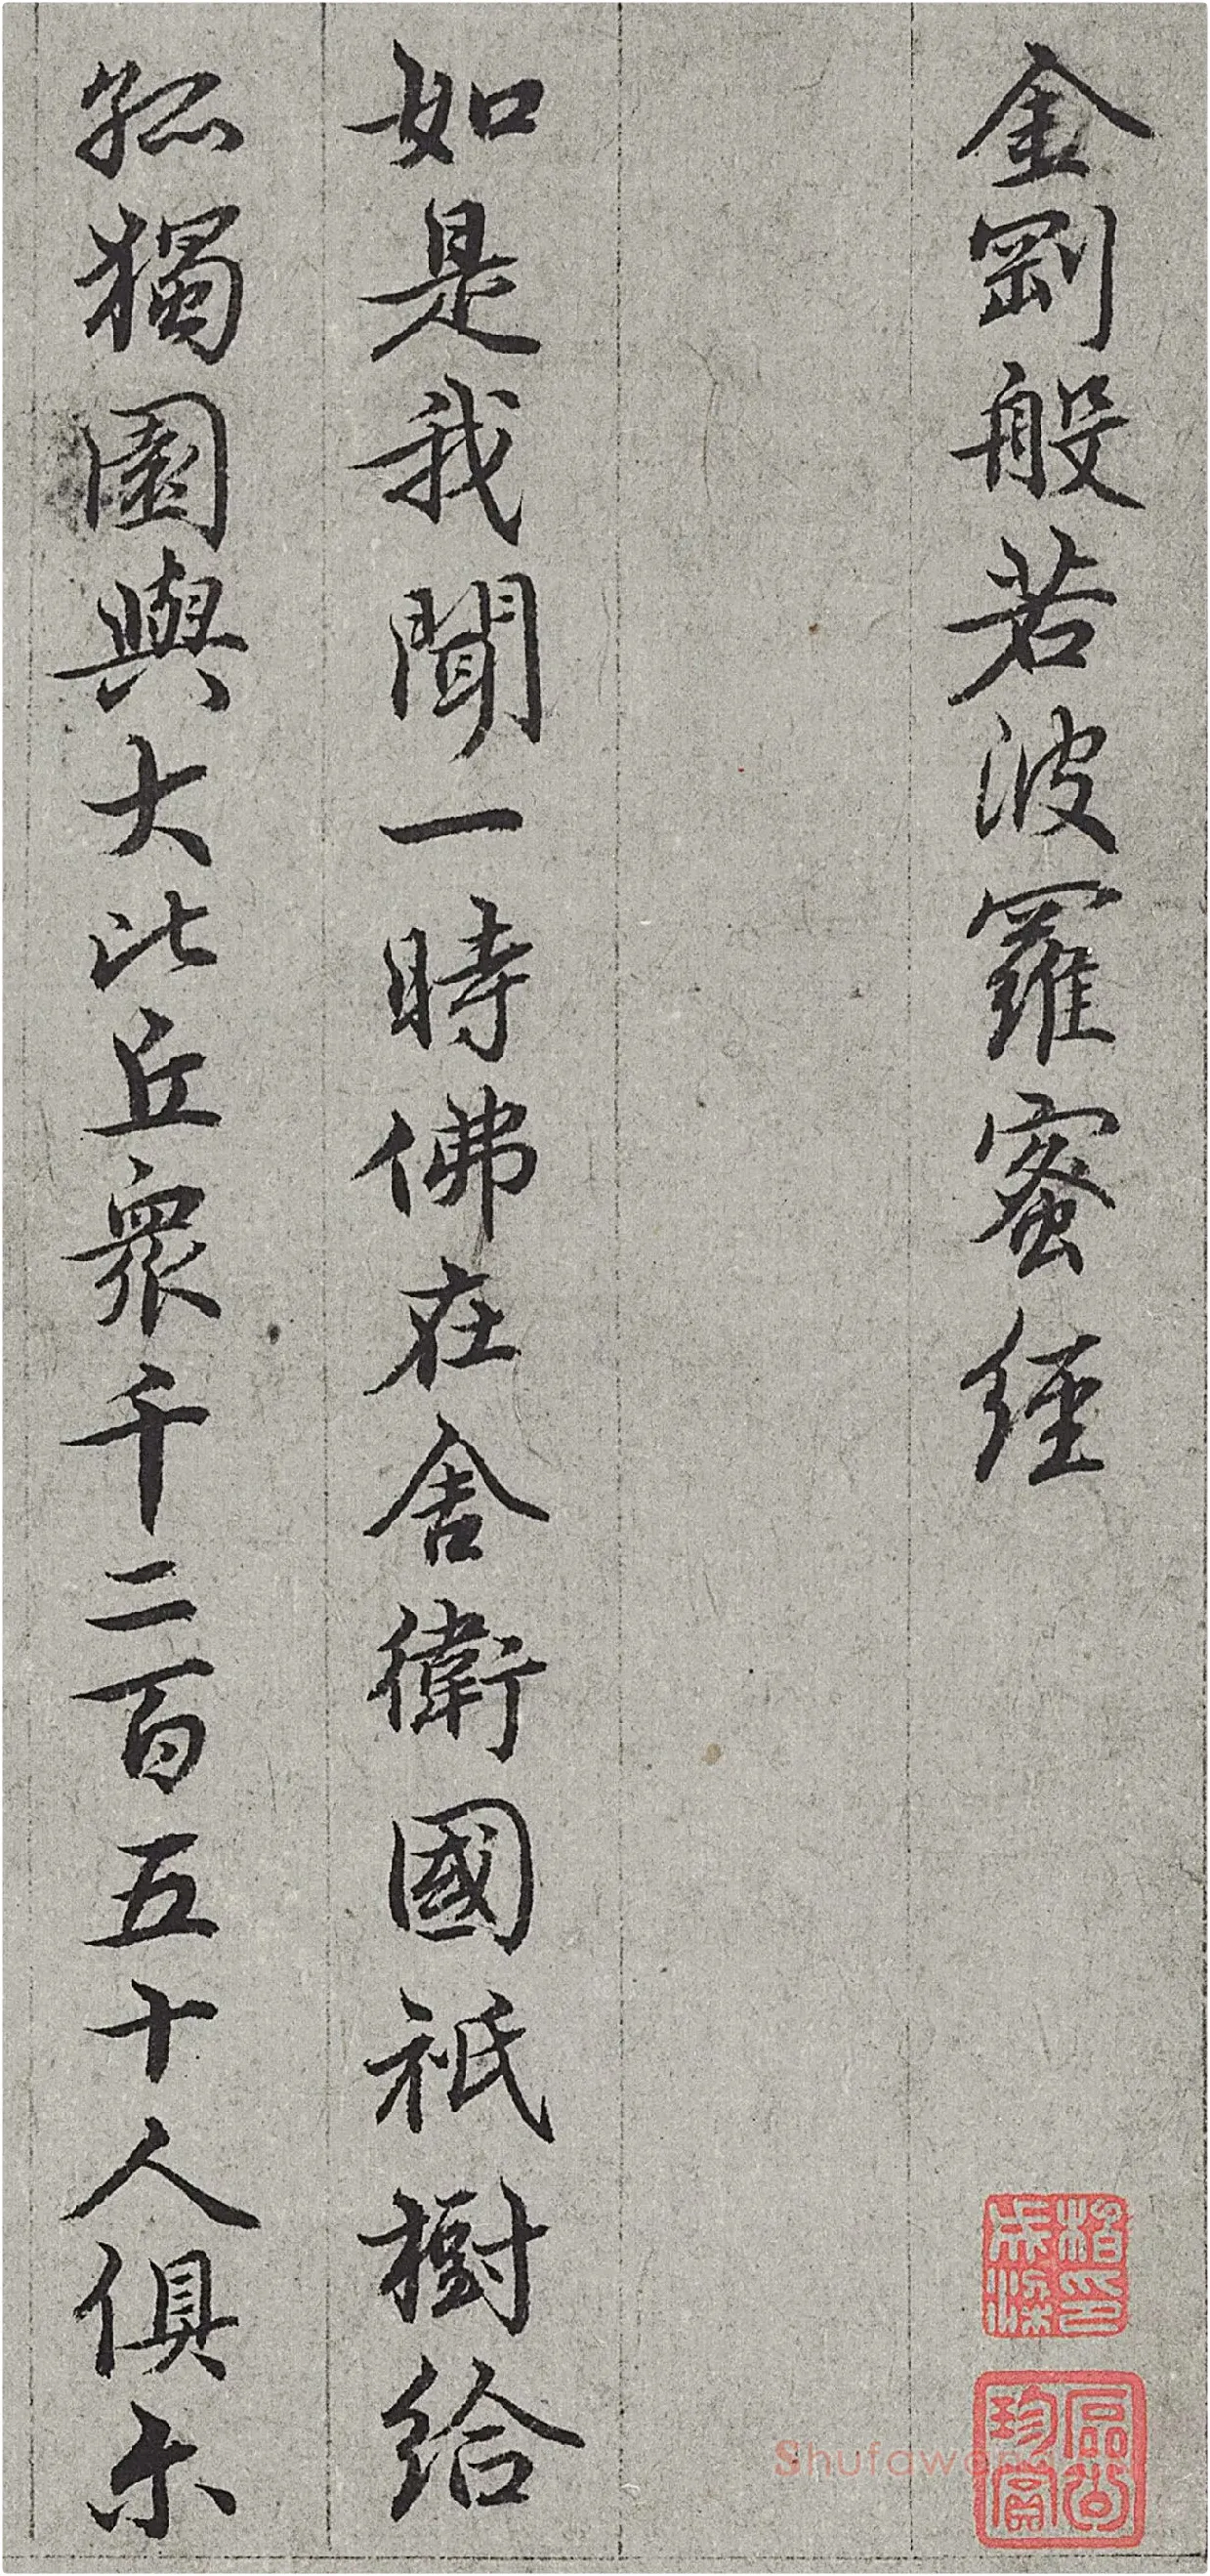 金剛般若波羅蜜經
如是我聞一時佛在舍衛國祇樹給
孤獨園與大比丘衆千二百五十人俱尔
Shufawang